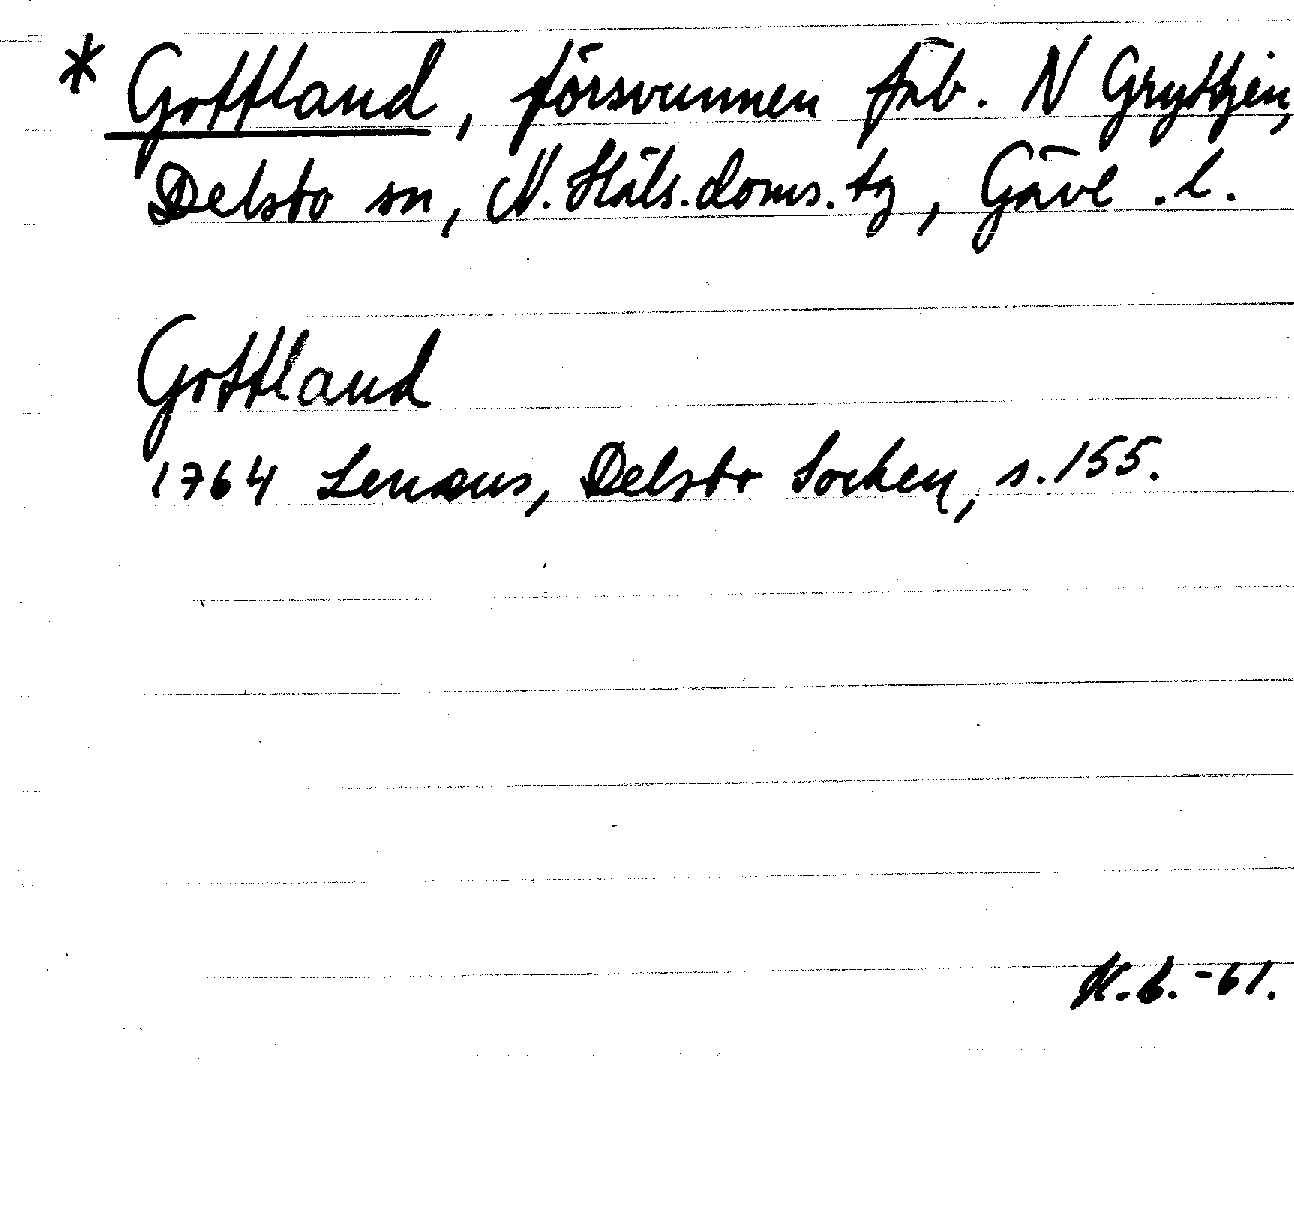 * Gottland, försvunnen fäb. N Gryttjen,
Delsbo sn, N. Häls. doms. tg, Gävl. l.
Gottland
1764 Lenæus, Delsbo Socken, s. 155.
-61.